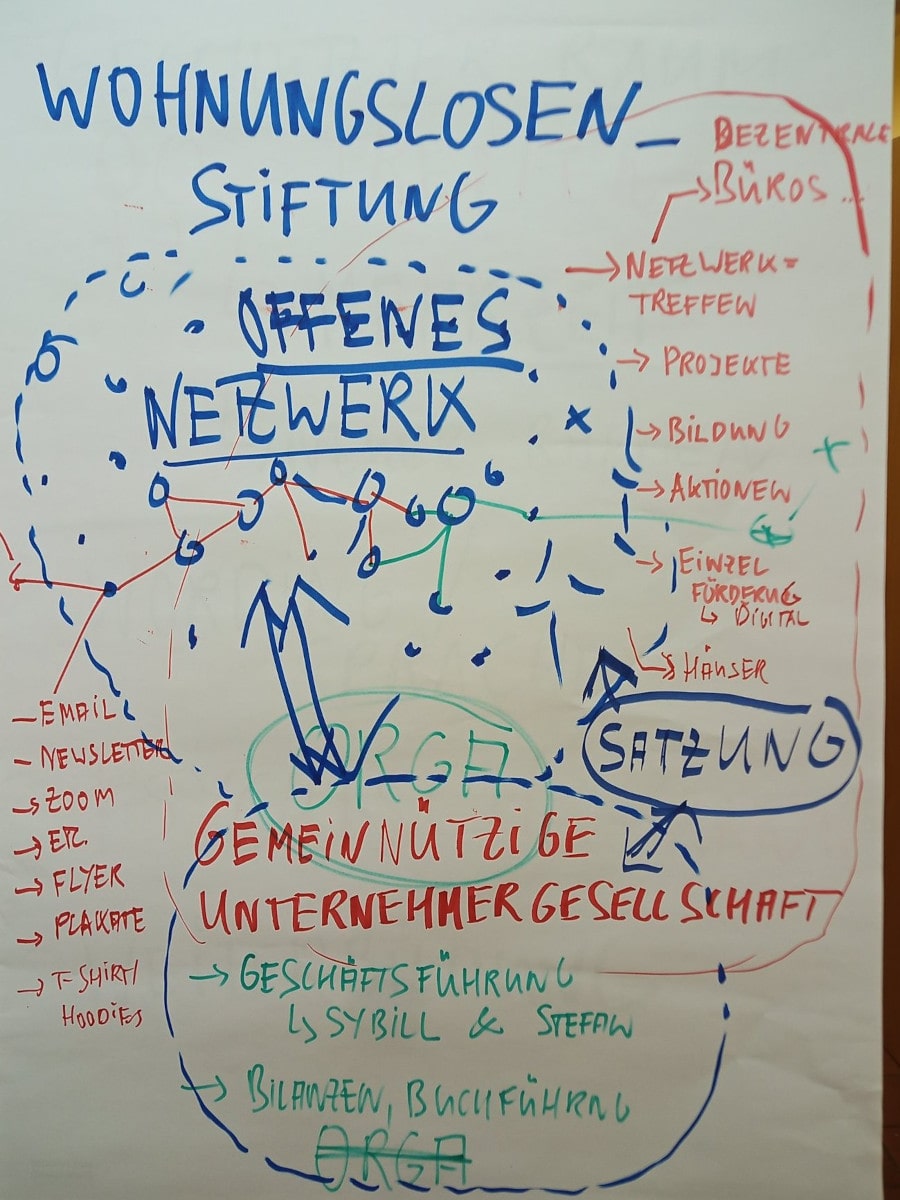 WOHNUNGSLOSEN_
STIFTUNG
OFFENES
NETZWERK
DEZENTRALE
→ BÜROS ...
→ NETZWERK=
TREFFEN
→ PROJEKTE
→ BILDUNG
→ AKTIONEN
→ EINZEL
FÖRDERUG
↳ DIGITAL
→ HÄUSER
SATZUNG
ORGA
– EMAIL
– NEWSLETTER
→ ZOOM
→ ETC.
→ FLYER
→ PLAKATE
→ T-SHIRT/
HOODIES
GEMEINNÜTZIGE
UNTERNEHMERGESELLSCHAFT
→ GESCHÄFTSFÜHRUNG
↳ SYBILL & STEFAN
→ BILANZEN, BUCHFÜHRNG
ORGA